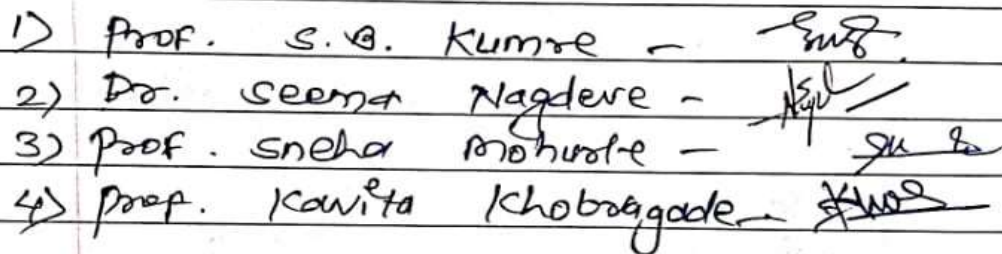 1) Prof. S.B. Kumre -
2) Dr. Seema Nagdeve -
3) Prof. Sneha Mohurle -
4) Prof. Kavita Khobragade -